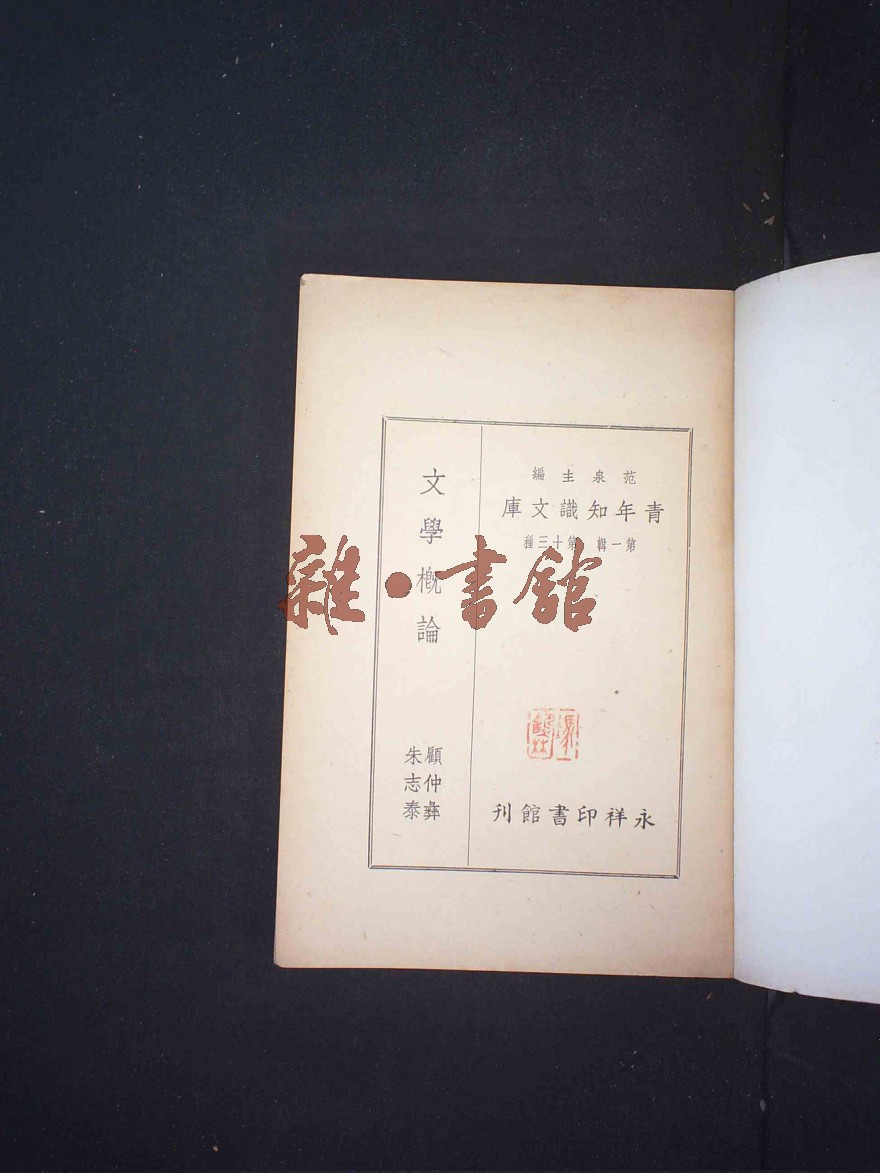 范泉主編
青年知識文庫
第一輯 第十三種
永祥印書館刊
文學概論
顧仲彝
朱志泰
雜·書館